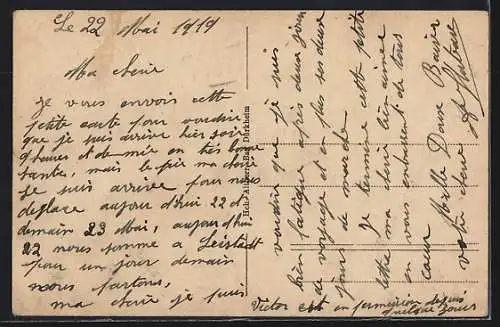 Le 22 Mai 1919
Ma cherie
Je vous envois cette
petite carte pour voudrir
que je suis arrive hier soir
9 heures et de mie en tres bone
sante, mais le pir ma cherie
je suis arrive pour nous
deplace aujour d'hui 22 et
demain 23 Mai, aujour d'hui
22 nous somme a Leistadt
pour un jour demain
nous partons,
ma cherie je suis
voudrir que je suis
bien fatigue après deux jours
de voyage et en plus ses deux
jours de marche
Je termine cette petite
lettre ma cherie bien aimee
en vous embrassent de tous
cœur Mille Doux Baiser
votre cheri
Victor est en permission depuis
quelque jours
Hofk. Aldinger, Bad Dürkheim